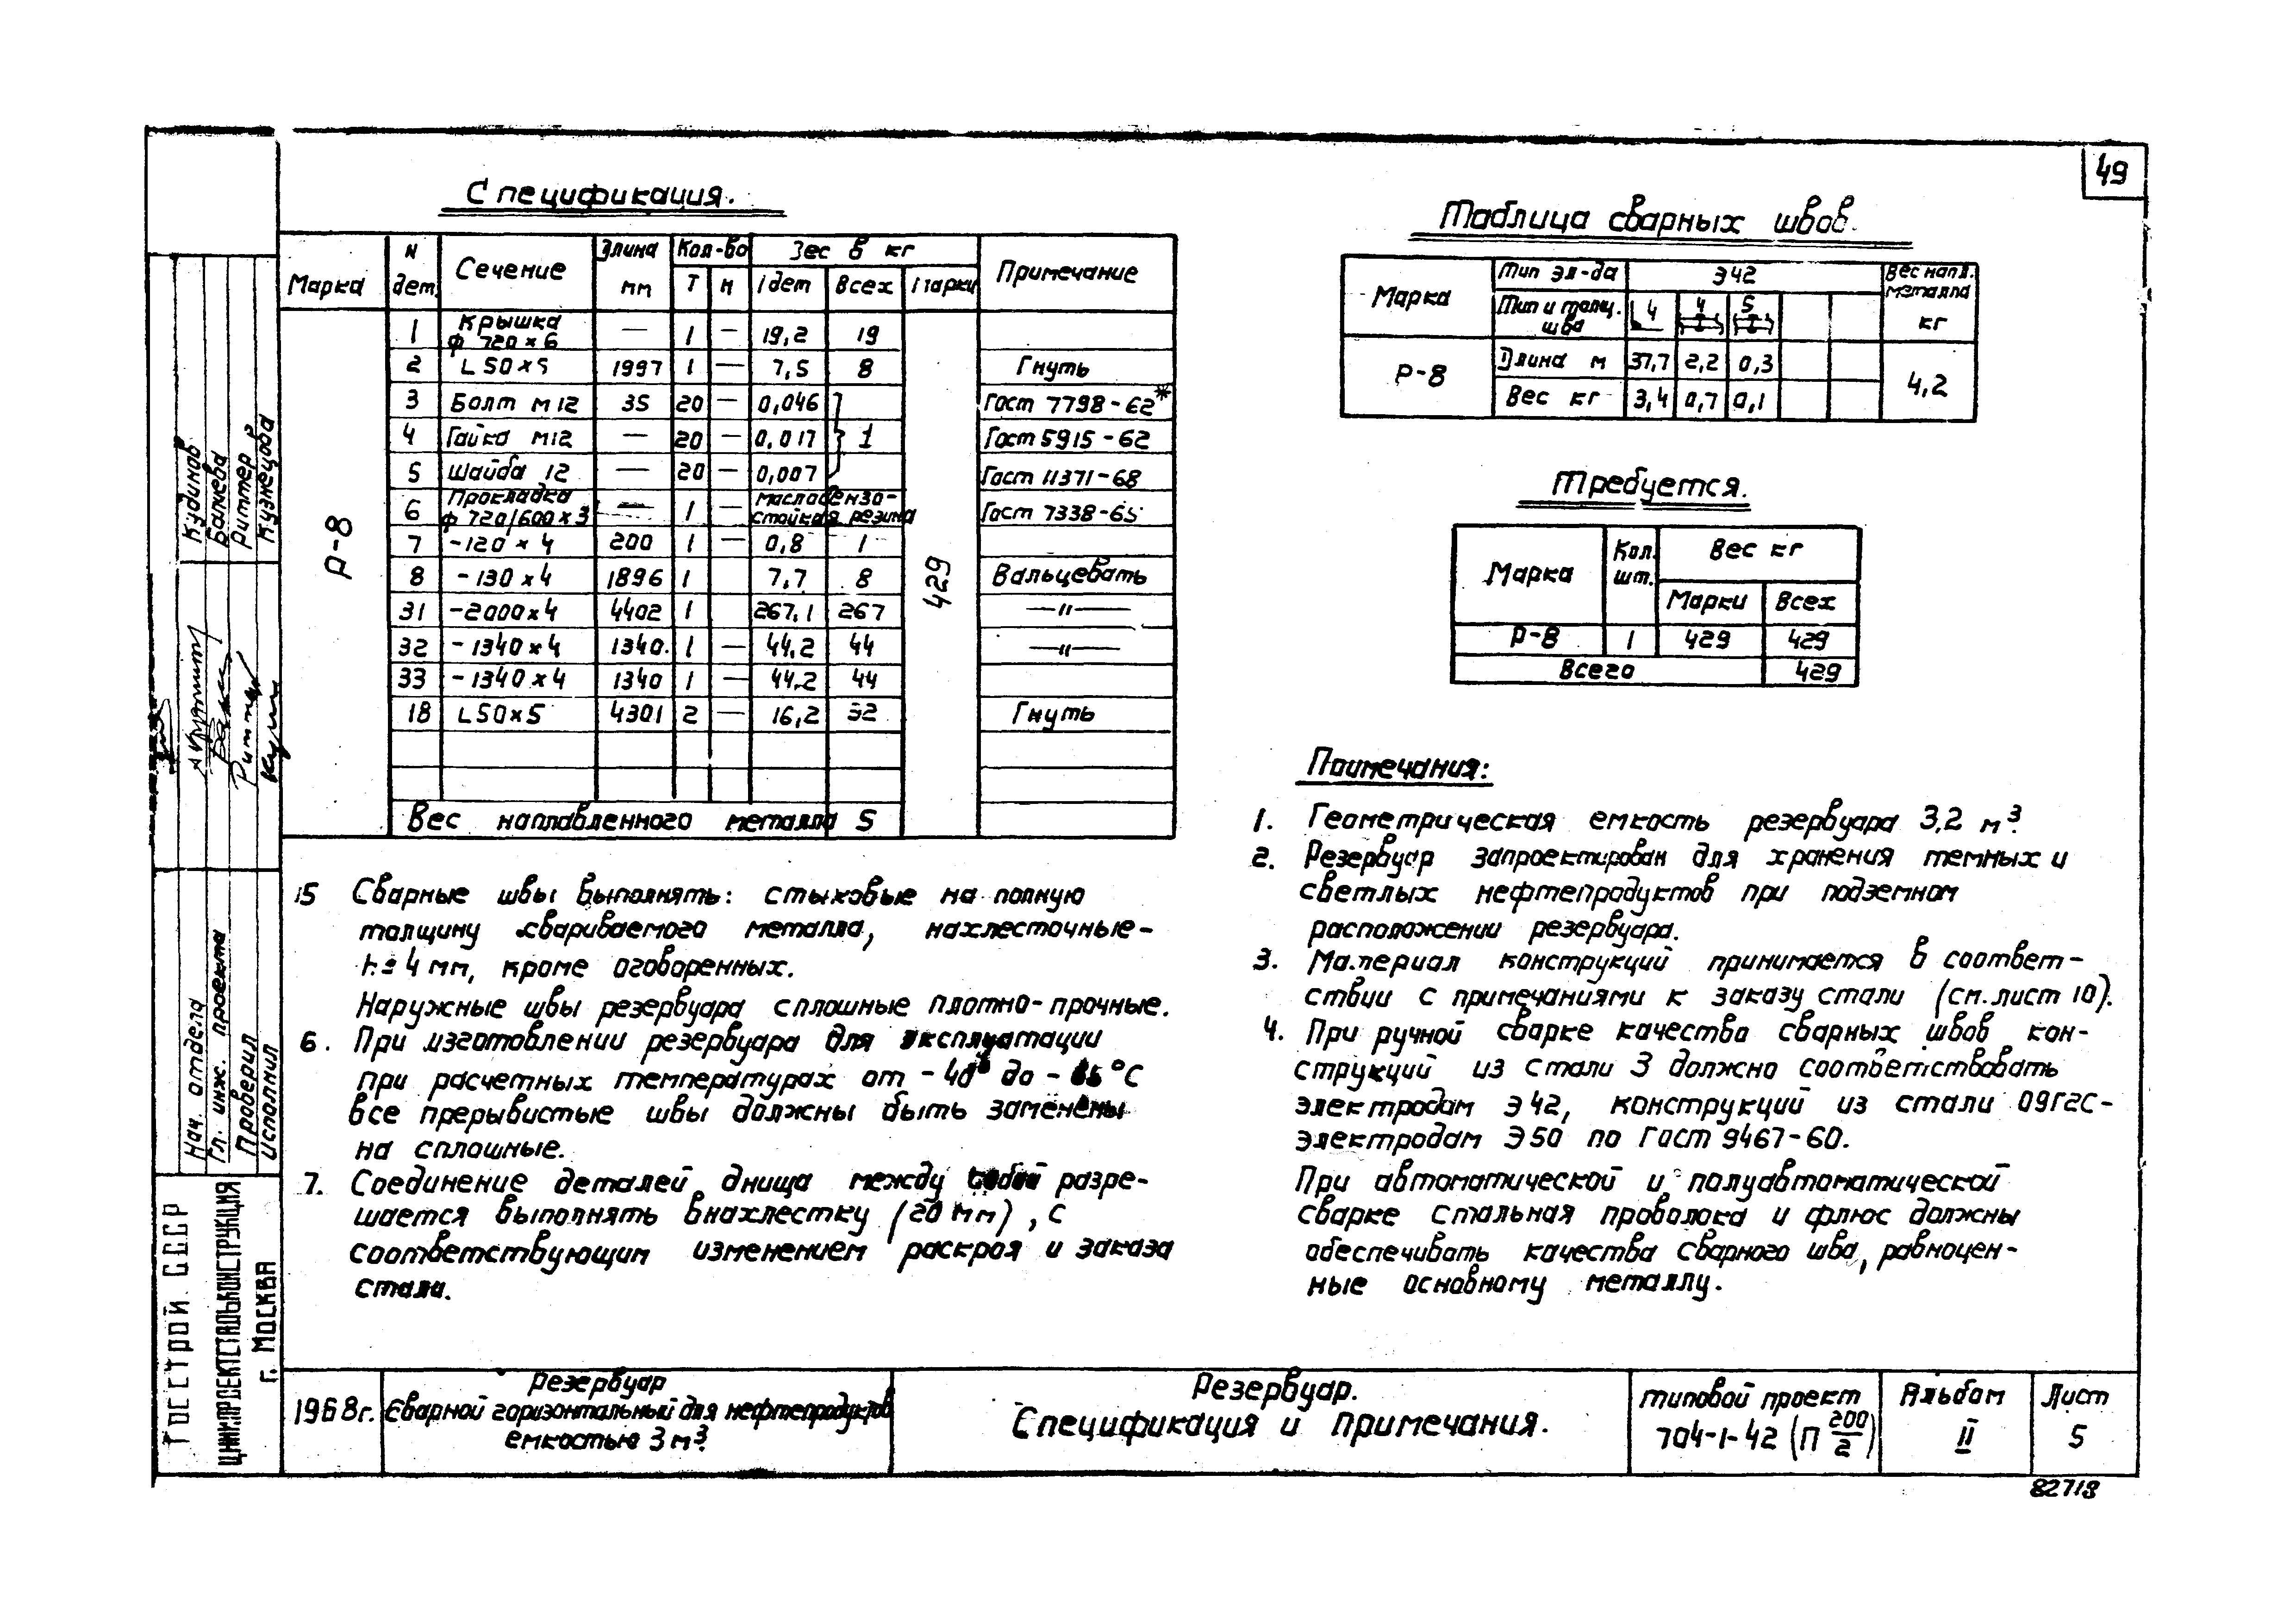 49
Спецификация.
Марка N дет. Сечение Длина мм Кол-во Вес в кг Примечание
Т Н 1 дет Всех Марки
Р-8
1 Крышка ф 720×6 — 1 — 19,2 19
2 L 50×5 1997 1 — 7,5 8 Гнуть
3 Болт М12 35 20 — 0,046 Гост 7798-62*
4 Гайка М12 — 20 — 0,017 1 Гост 5915-62
5 Шайба 12 — 20 — 0,007 Гост 11371-68
6 Прокладка ф 720/600×3 — 1 — маслобензостойкая резина Гост 7338-65
7 -120×4 200 1 — 0,8 1
8 -130×4 1896 1 7,7 8 Вальцевать
31 -2000×4 4402 1 267,1 267 —"—
32 -1340×4 1340 1 — 44,2 44 —"—
33 -1340×4 1340 1 — 44,2 44
18 L50×5 4301 2 — 16,2 32 Гнуть
429
Вес наплавленного металла 5
Таблица сварных швов.
Марка Тип эл-да Э42 Вес напл. металла кг
Тип и толщ. шва 4 4 5
Р-8 Длина м 37,7 2,2 0,3 4,2
Вес кг 3,4 0,7 0,1
Требуется.
Марка Кол. шт. Вес кг
Марки Всех
Р-8 1 429 429
Всего 429
Примечания:
1. Геометрическая емкость резервуара 3,2 м³.
2. Резервуар запроектирован для хранения темных и
светлых нефтепродуктов при подземном
расположении резервуара.
3. Материал конструкций принимается в соответ-
ствии с примечаниями к заказу стали (см. лист 10).
4. При ручной сварке качества сварных швов кон-
струкций из стали 3 должно соответствовать
электродам Э42, конструкций из стали 09Г2С-
электродам Э50 по Гост 9467-60.
При автоматической и полуавтоматической
сварке стальная проволока и флюс должны
обеспечивать качества сварного шва, равноцен-
ные основному металлу.
5 Сварные швы выполнять: стыковые на полную
толщину свариваемого металла, нахлесточные-
h=4 мм, кроме оговоренных.
Наружные швы резервуара сплошные плотно-прочные.
6. При изготовлении резервуара для эксплуатации
при расчетных температурах от -40° до -65°С
все прерывистые швы должны быть заменены
на сплошные.
7. Соединение деталей днища между собой разре-
шается выполнять внахлестку (20 мм), с
соответствующим изменением раскроя и заказа
стали.
Нач. отдела Кудинов
Гл. инж. проекта Валиева
Проверил Риттер
Исполнил Кузнецова
ГОССТРОЙ СССР
ЦНИИПРОЕКТСТАЛЬКОНСТРУКЦИЯ
г. МОСКВА
1968г.
Резервуар
сварной горизонтальный для нефтепродуктов
емкостью 3 м³.
Резервуар.
Спецификация и примечания.
Типовой проект
704-1-42 (П 200/2)
Альбом
II
Лист
5
82718